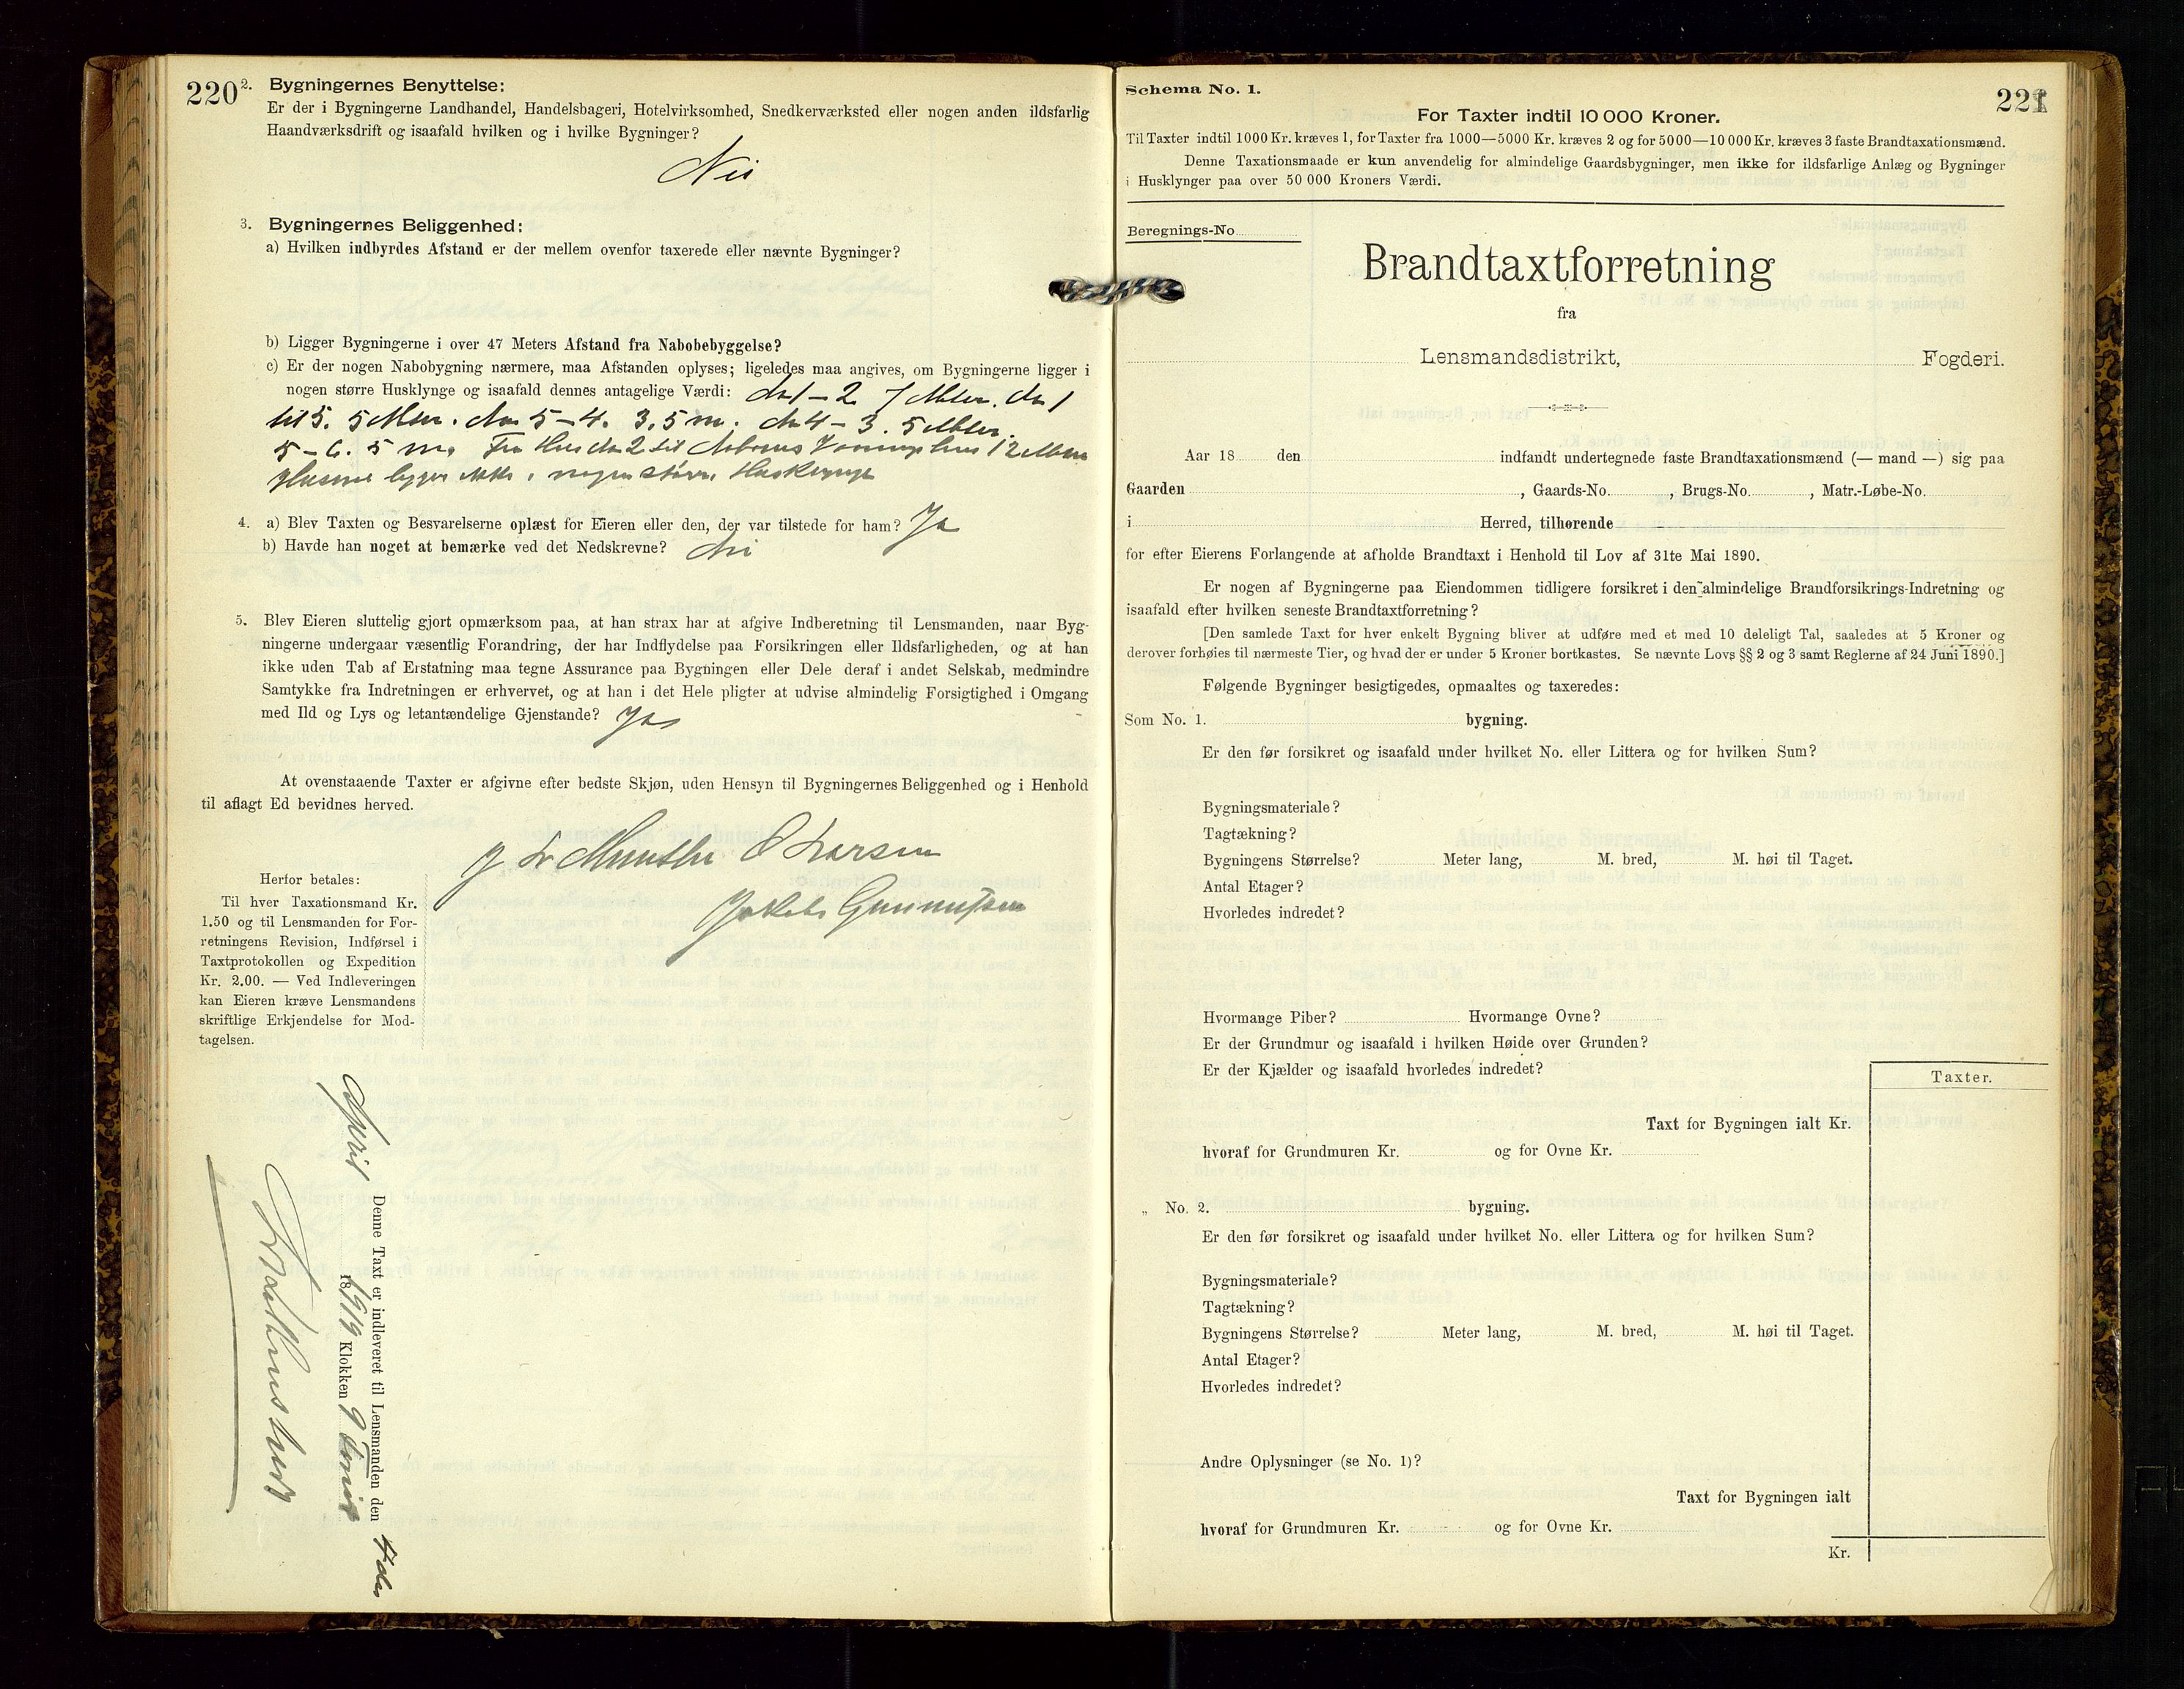 220
2. Bygningernes Benyttelse:
Er der i Bygningerne Landhandel, Handelsbageri, Hotelvirksomhed, Snedkerværksted eller nogen anden ildsfarlig
Haandværksdrift og isaafald hvilken og i hvilke Bygninger?
Nei
3. Bygningernes Beliggenhed:
a) Hvilken indbyrdes Afstand er der mellem ovenfor taxerede eller nævnte Bygninger?
b) Ligger Bygningerne i over 47 Meters Afstand fra Nabobebyggelse?
c) Er der nogen Nabobygning nærmere, maa Afstanden oplyses; ligeledes maa angives, om Bygningerne ligger i
nogen større Husklynge og isaafald dennes antagelige Værdi: No 1 – 2. 7 Mtr. No 1
til 5. 5 Mtr. No 5 – 4. 3,5 m. No 4 – 3. 5 Mtr.
5 – 6. 5 m. Fra Hus No 2 til Naboens Vaaningshus 12 Mtr
Husene ligger ikke i nogen større Husklynge
4. a) Blev Taxten og Besvarelserne oplæst for Eieren eller den, der var tilstede for ham? Ja
b) Havde han noget at bemærke ved det Nedskrevne? Nei
5. Blev Eieren sluttelig gjort opmærksom paa, at han strax har at afgive Indberetning til Lensmanden, naar Byg-
ningerne undergaar væsentlig Forandring, der har Indflydelse paa Forsikringen eller Ildsfarligheden, og at han
ikke uden Tab af Erstatning maa tegne Assurance paa Bygningen eller Dele deraf i andet Selskab, medmindre
Samtykke fra Indretningen er erhvervet, og at han i det Hele pligter at udvise almindelig Forsigtighed i Omgang
med Ild og Lys og letantændelige Gjenstande? Ja
At ovenstaaende Taxter er afgivne efter bedste Skjøn, uden Hensyn til Bygningernes Beliggenhed og i Henhold
til aflagt Ed bevidnes herved.
Munthe O Larsen
Jakob Gunnufsen
Herfor betales:
Til hver Taxationsmand Kr.
1.50 og til Lensmanden for For-
retningens Revision, Indførsel i
Taxtprotokollen og Expedition
Kr. 2.00. — Ved Indleveringen
kan Eieren kræve Lensmandens
skriftlige Erkjendelse for Mod-
tagelsen.
Denne Taxt er indleveret til Lensmanden den 4de
April 18 1919 Klokken 9 Form
221
Schema No. 1.
For Taxter indtil 10 000 Kroner.
Til Taxter indtil 1000 Kr. kræves 1, for Taxter fra 1000—5000 Kr. kræves 2 og for 5000—10 000 Kr. kræves 3 faste Brandtaxationsmænd.
Denne Taxationsmaade er kun anvendelig for almindelige Gaardsbygninger, men ikke for ildsfarlige Anlæg og Bygninger
i Husklynger paa over 50 000 Kroners Værdi.
Beregnings-No
Brandtaxtforretning
fra
Lensmandsdistrikt, Fogderi.
Aar 18 den indfandt undertegnede faste Brandtaxationsmænd (— mand —) sig paa
Gaarden , Gaards-No. , Brugs-No. , Matr.-Løbe-No.
i Herred, tilhørende
for efter Eierens Forlangende at afholde Brandtaxt i Henhold til Lov af 31te Mai 1890.
Er nogen af Bygningerne paa Eiendommen tidligere forsikret i den almindelige Brandforsikrings-Indretning og
isaafald efter hvilken seneste Brandtaxtforretning?
[Den samlede Taxt for hver enkelt Bygning bliver at udføre med et med 10 deleligt Tal, saaledes at 5 Kroner og
derover forhøies til nærmeste Tier, og hvad der er under 5 Kroner bortkastes. Se nævnte Lovs §§ 2 og 3 samt Reglerne af 24 Juni 1890.]
Følgende Bygninger besigtigedes, opmaaltes og taxeredes:
Som No. 1. bygning.
Er den før forsikret og isaafald under hvilket No. eller Littera og for hvilken Sum?
Bygningsmateriale?
Tagtækning?
Bygningens Størrelse? Meter lang, M. bred, M. høi til Taget.
Antal Etager?
Hvorledes indredet?
Hvormange Piber? Hvormange Ovne?
Er der Grundmur og isaafald i hvilken Høide over Grunden?
Er der Kjælder og isaafald hvorledes indredet?
Taxter.
Taxt for Bygningen ialt Kr.
hvoraf for Grundmuren Kr. og for Ovne Kr.
„ No. 2. bygning.
Er den før forsikret og isaafald under hvilket No. eller Littera og for hvilken Sum?
Bygningsmateriale?
Tagtækning?
Bygningens Størrelse? Meter lang, M. bred, M. høi til Taget.
Antal Etager?
Hvorledes indredet?
Andre Oplysninger (se No. 1)?
Taxt for Bygningen ialt
hvoraf for Grundmuren Kr. og for Ovne Kr.
Kr.